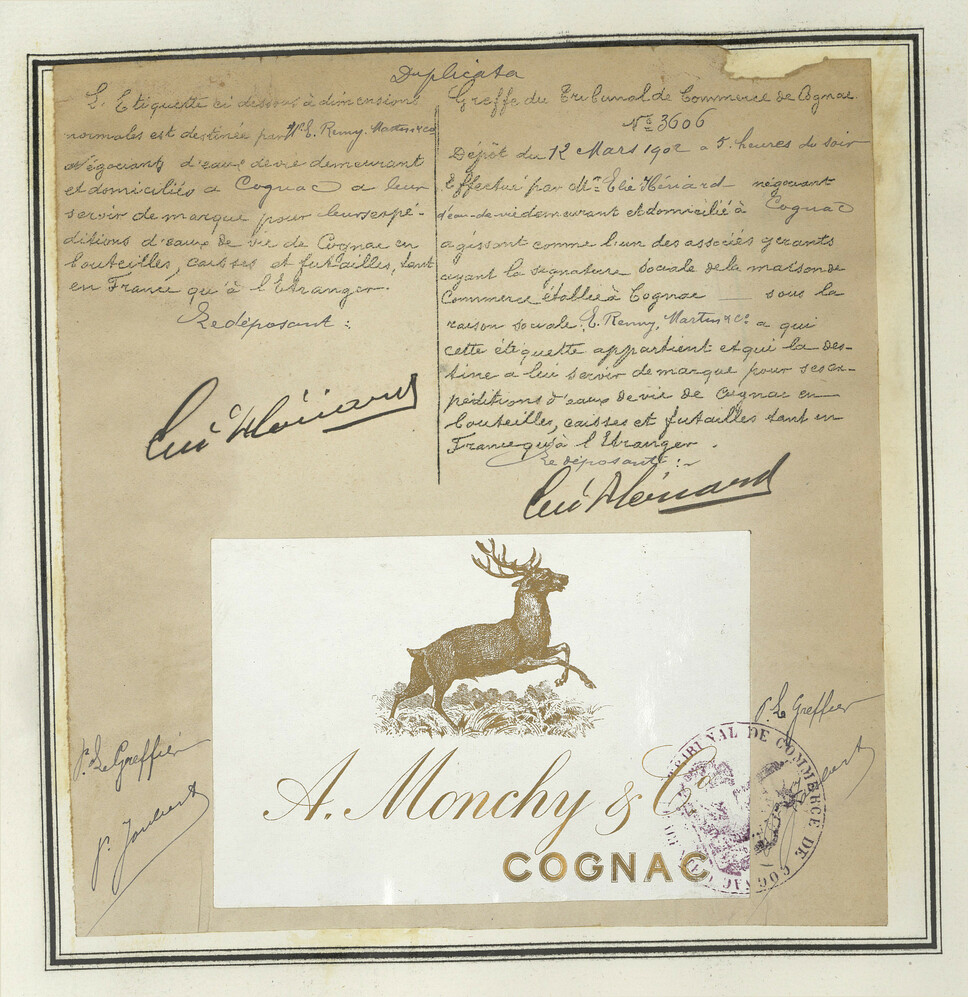 Duplicata
L'Etiquette ci dessous à dimensions
normales est destinée par Mrs E. Remy Martin & Co
Négociants d'eaux de vie demeurant
et domiciliés à Cognac à leur
servir de marque pour leurs expé-
ditions d'eaux de vie de Cognac en
bouteilles, caisses et futailles, tant
en France qu'à l'Etranger.
Le déposant :
Greffe du Tribunal de Commerce de Cognac.
No 3606
Dépôt du 12 Mars 1902 à 5 heures du soir
Effectué par Mr. Elie Hériard négociant
d'eau-de-vie demeurant et domicilié à Cognac
agissant comme l'un des associés gérants
ayant la signature sociale de la maison de
Commerce établie à Cognac sous la
raison sociale E. Remy, Martin & Co. a qui
cette étiquette appartient et qui la des-
tine à leur servir de marque pour ses ex-
péditions d'eaux de vie de Cognac en
bouteilles, caisses et futailles tant en
France qu'à l'Etranger.
Le déposant :
P. Le Greffier
P. Joubert
P. Le Greffier
A. Monchy & Co
COGNAC
TRIBUNAL DE COMMERCE DE COGNAC